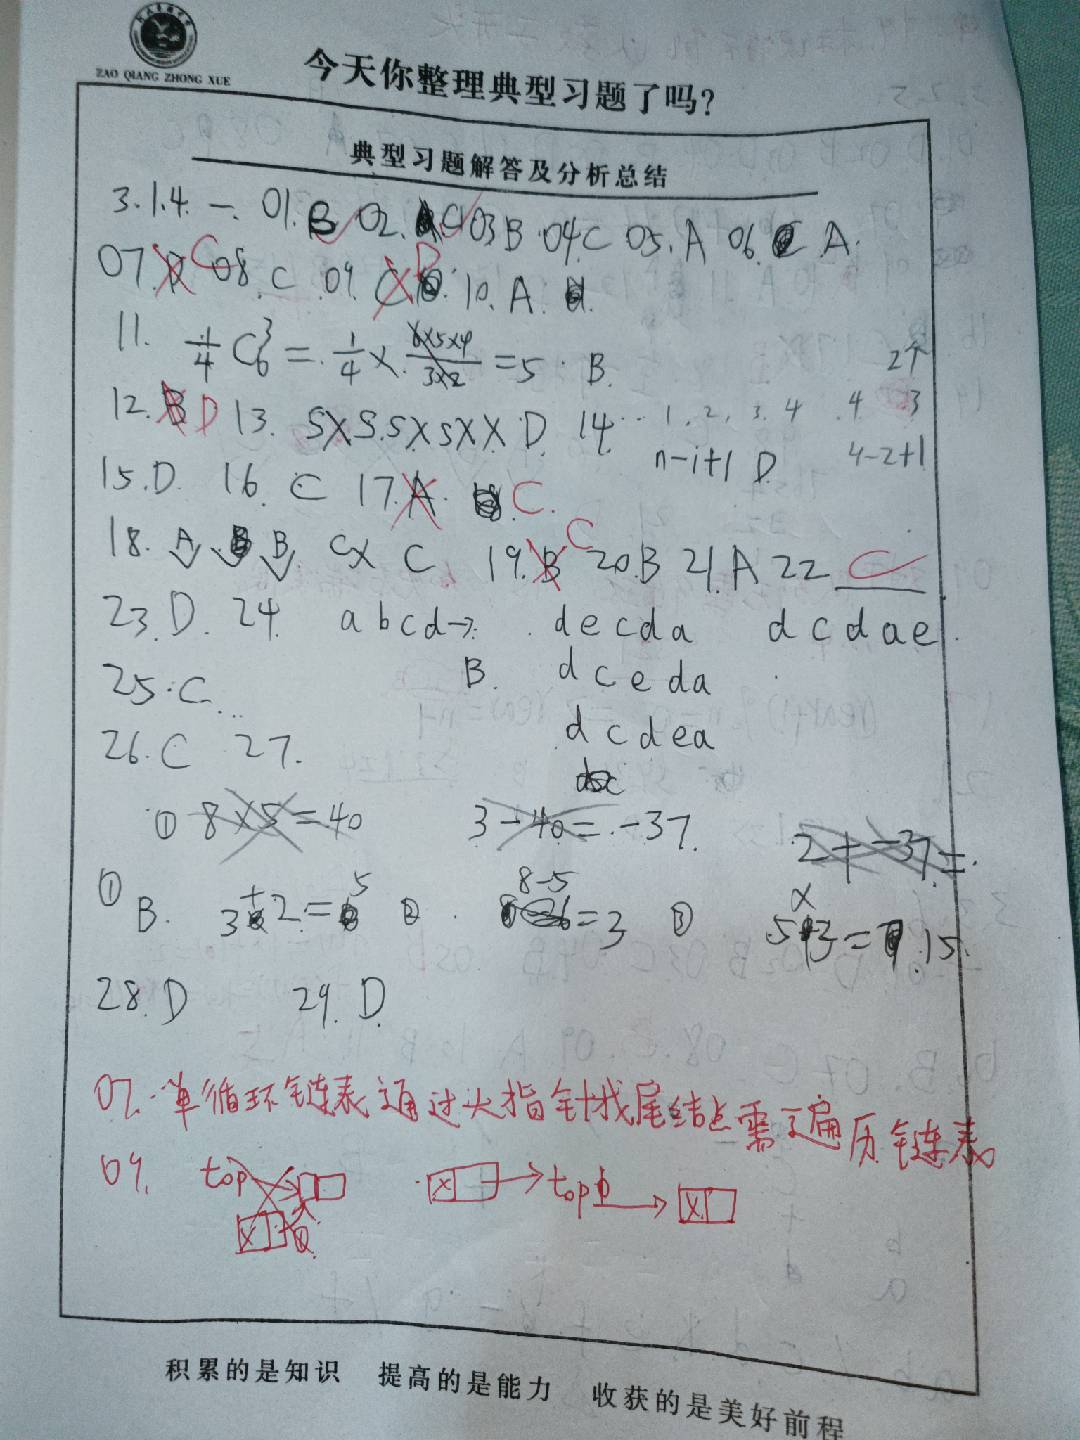 ZAO QIANG ZHONG XUE
今天你整理典型习题了吗?
典型习题解答及分析总结
3.1.4. 一. 01. B 02. C 03 B 04. C 05. A 06. A.
07. C 08. C 09. B 10. A.
11. 1/4 C₆³ = 1/4 × 6×5×4/3×2 = 5 B.
2个
12. B D 13. S X S. S X S X X D. 14. 1, 2, 3, 4 4 3
n-i+1 D. 4-2+1
15. D. 16. C 17. A C.
18. A B C X C 19. B C 20. B 21. A 22 C
23. D. 24. a b c d → d e c d a d c d a e.
B. d c e d a
25. C
d c d e a
26. C 27.
① 8×5=40 3-40=-37. 2+-37=
① B. 3+2=5 ② 8-5=3 ③ 5×3=15.
28. D 29. D.
07. 单循环链表通过头指针找尾结点需要遍历链表
09. top X top X
积累的是知识 提高的是能力 收获的是美好前程